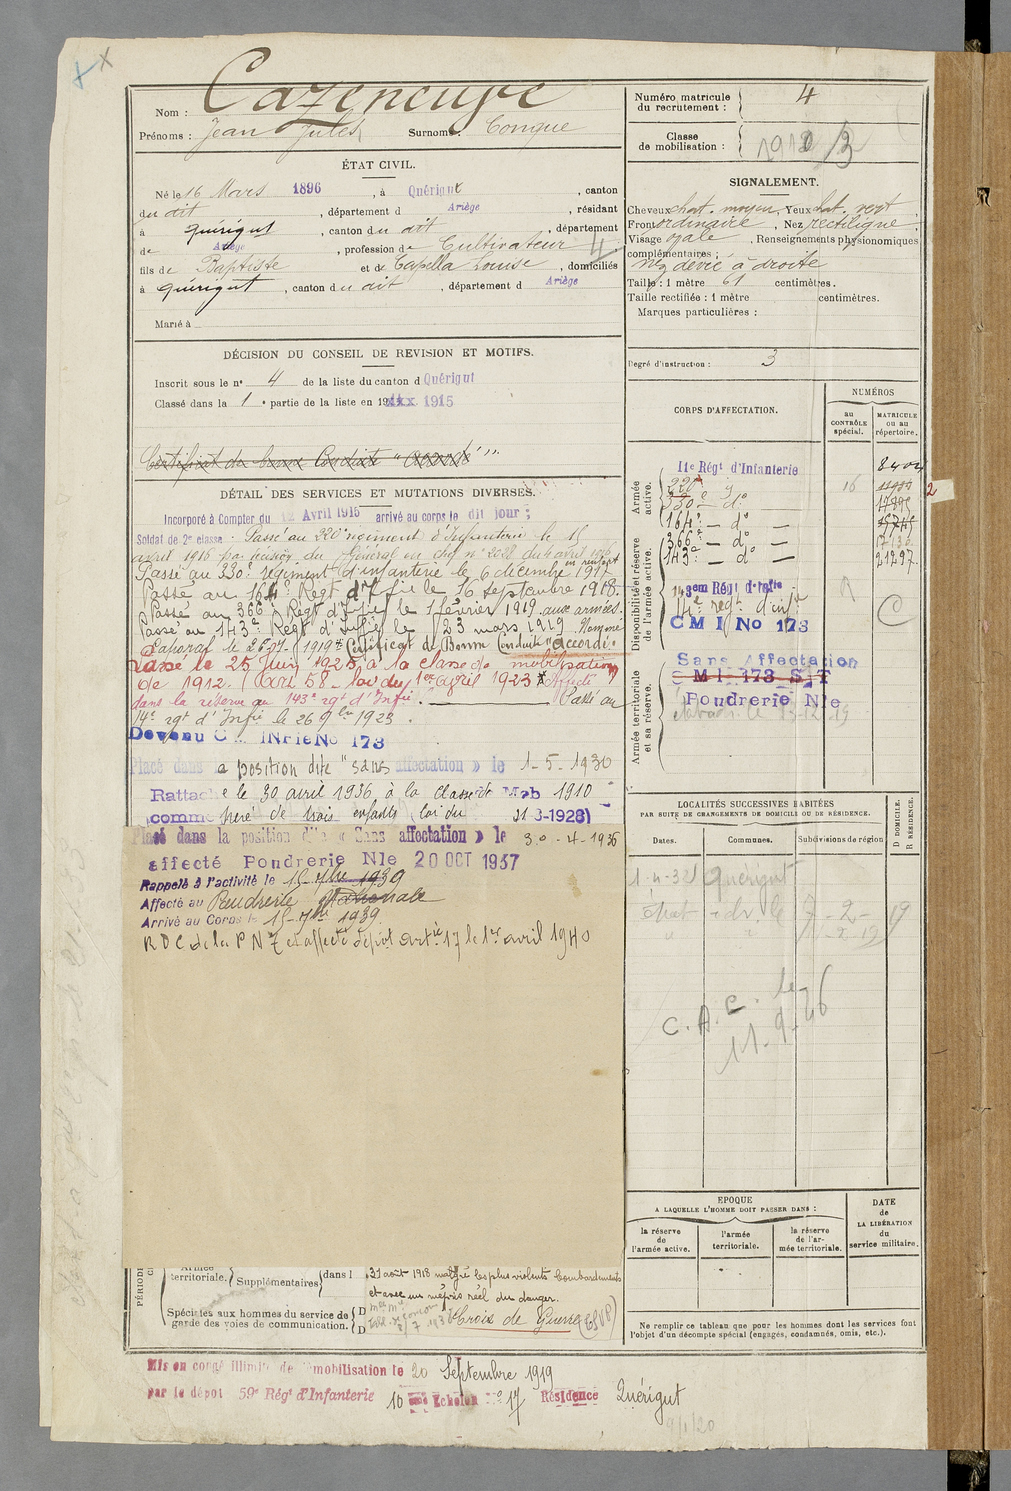 Cazeneuve
Nom :
Prénoms : Jean Jules Surnoms : Conque
ÉTAT CIVIL.
Né le 16 Mars 1896, à Quérigut, canton
du dit, département d Ariège, résidant
à Quérigut, canton du dit, département
de Ariège, profession de Cultivateur
fils de Baptiste et de Capella Louise, domiciliés
à Quérigut, canton du dit, département d Ariège
Marié à
DÉCISION DU CONSEIL DE REVISION ET MOTIFS.
Inscrit sous le n° 4 de la liste du canton d Quérigut
Classé dans la 1e partie de la liste en 19 1915
Certificat de bonne Conduite "Accordé"
DÉTAIL DES SERVICES ET MUTATIONS DIVERSES.
Incorporé à Compter du 12 Avril 1915 arrivé au corps le dit jour ;
Soldat de 2e classe. Passé au 220e régiment d'Infanterie le 15
avril 1916 par décision du Général en chef n° du 6 avril 1916
Passé au 330e régiment d'infanterie le 6 décembre 1917 en renfort
Passé au 164e Régt d'Inf ie le 16 septembre 1918.
Passé au 366e Régt d'Inf ie le 1 février 1919 aux armées.
Passé au 143e Régt d'Inf ie le 23 mars 1919. Nommé
Caporal le 1919 Certificat de Bonne Conduite "accordé"
Passé le 25 Juin 1925, à la classe de mobilisation
de 1912. (Art 58 - loi du 1er avril 1923 Affecté
dans la réserve au 143e rgt d'Infie. Passé au
14e rgt d'Infie le 26 9bre 1923.
Devenu C INFie No 173
Placé dans la position dite "sans affectation » le 1-5-1930
Rattaché le 30 avril 1936 à la classe de Mob 1910
(comme père de trois enfants (loi du 31-3-1928)
Placé dans la position dite « Sans affectation » le 30-4-1936
affecté Poudrerie Nle 20 OCT 1937
Rappelé à l'activité le 15-7bre 1939
Affecté au Poudrerie Nationale
Arrivé au Corps le 15-7bre 1939
R D C de la P N et affecté dépôt artie 17 le 1er avril 1940
PÉRIODE
Armée
territoriale. Supplémentaires dans l
31 août 1918 malgré les plus violents bombardements
et avec un mépris réel du danger.
Spéciales aux hommes du service de
garde des voies de communication.
D
D
Croix de Guerre
Mis en congé illimité de démobilisation le 20 Septembre 1919
par le dépôt 59e Régt d'Infanterie 10 eme Echelon No 17 Résidence Quérigut
9/1/20
Numéro matricule
du recrutement : 4
Classe
de mobilisation :
SIGNALEMENT.
Cheveux chat. moyen, Yeux chat. vert
Front ordinaire, Nez rectiligne
Visage ovale, Renseignements physionomiques
complémentaires :
Nez dévié à droite
Taille : 1 mètre 61 centimètres.
Taille rectifiée : 1 mètre centimètres.
Marques particulières :
Degré d'instruction : 3
CORPS D'AFFECTATION.
NUMÉROS
au
CONTRÔLE
spécial.
MATRICULE
ou au
répertoire.
Armée
active.
11e Régt d'Infanterie 8404
220e 16
2
330e - do -
164e - do -
Disponibilité et réserve
de l'armée active.
366e - do -
143e - do - 21297
143em Régt d'Infie
14e regt d'inf
C M I No 173
C
Armée territoriale
et sa réserve.
Sans Affectation
C M I 173 S T
Poudrerie Nle
LOCALITÉS SUCCESSIVES HABITÉES
PAR SUITE DE CHANGEMENTS DE DOMICILE OU DE RÉSIDENCE.
Dates.
Communes.
Subdivisions de région
D DOMICILE.
R RÉSIDENCE.
1-4-32 Quérigut
C. A. C. le
11-9-46
EPOQUE
A LAQUELLE L'HOMME DOIT PASSER DANS :
la réserve
de
l'armée active.
l'armée
territoriale.
la réserve
de l'ar-
mée territoriale.
DATE
de
LA LIBÉRATION
du
service militaire.
Ne remplir ce tableau que pour les hommes dont les services font
l'objet d'un décompte spécial (engagés, condamnés, omis, etc.).